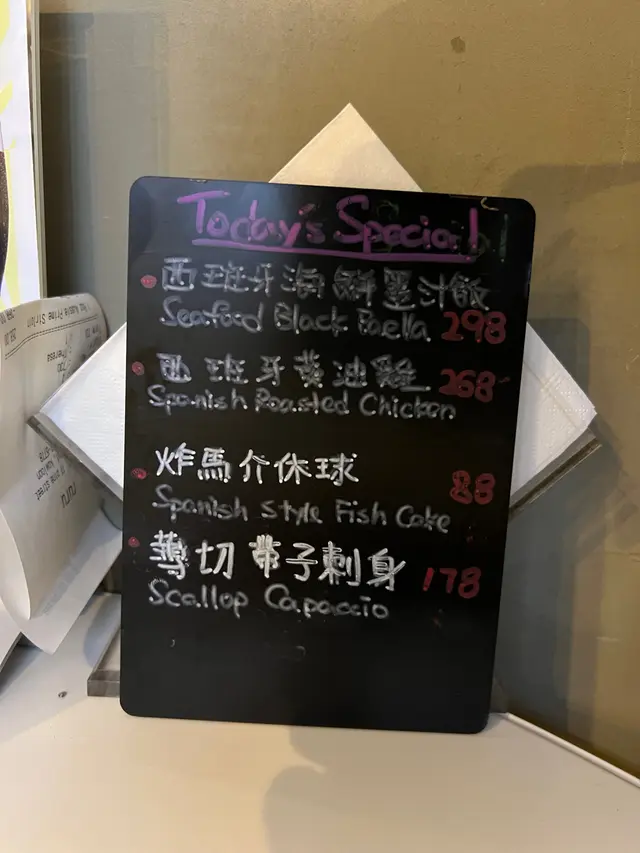 Today's Special!
西班牙海鮮墨汁飯
Seafood Black Paella 298
西班牙黃油雞 268
Spanish Roasted Chicken
炸馬介休球
88
Spanish Style Fish Cake
薄切帶子刺身 178
Scallop Capaccio
nuru